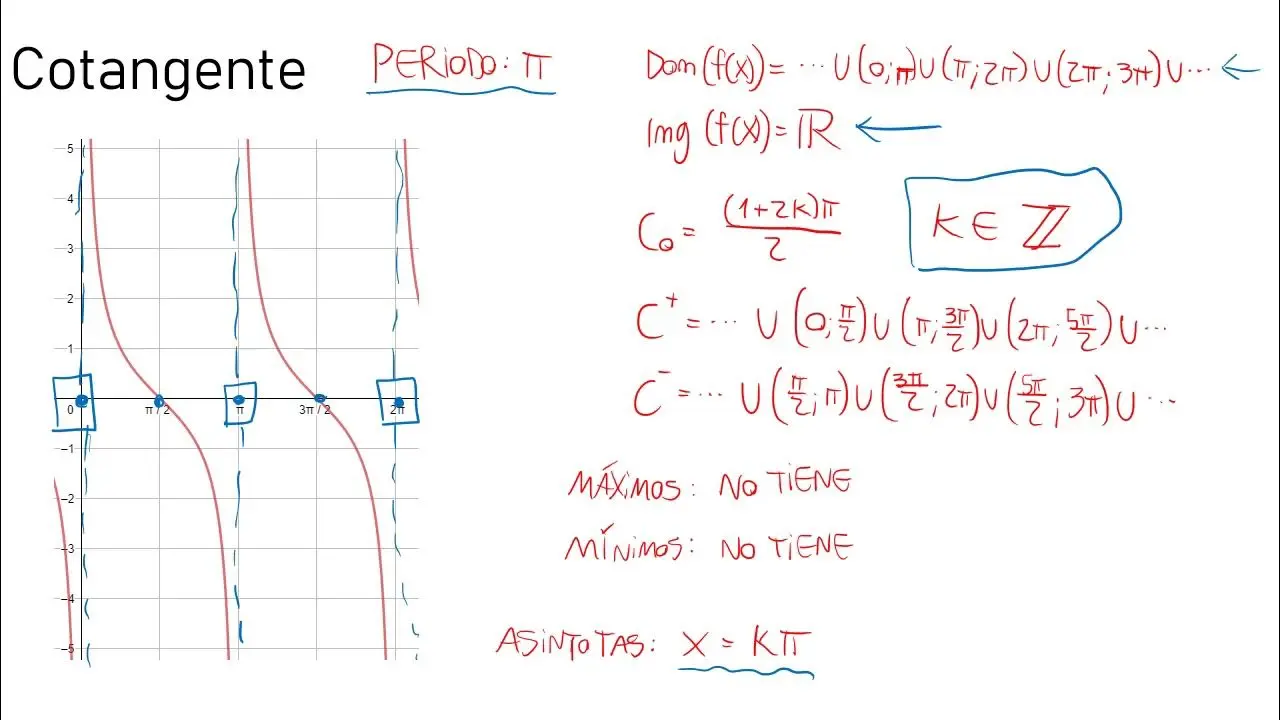 Cotangente
PERIODO: π
Dom (f(x)) = ... ∪ (0; π) ∪ (π; 2π) ∪ (2π; 3π) ∪ ...
Img (f(x)) = ℝ
C₀ = (1+2K)π / 2
K ∈ ℤ
C⁺ = ... ∪ (0; π/2) ∪ (π; 3π/2) ∪ (2π; 5π/2) ∪ ...
C⁻ = ... ∪ (π/2; π) ∪ (3π/2; 2π) ∪ (5π/2; 3π) ∪ ...
MÁXIMOS: NO TIENE
MÍNIMOS: NO TIENE
ASINTOTAS: X = Kπ
5
4
3
2
1
0 π / 2 π 3π / 2 2π
−1
−2
−3
−4
−5